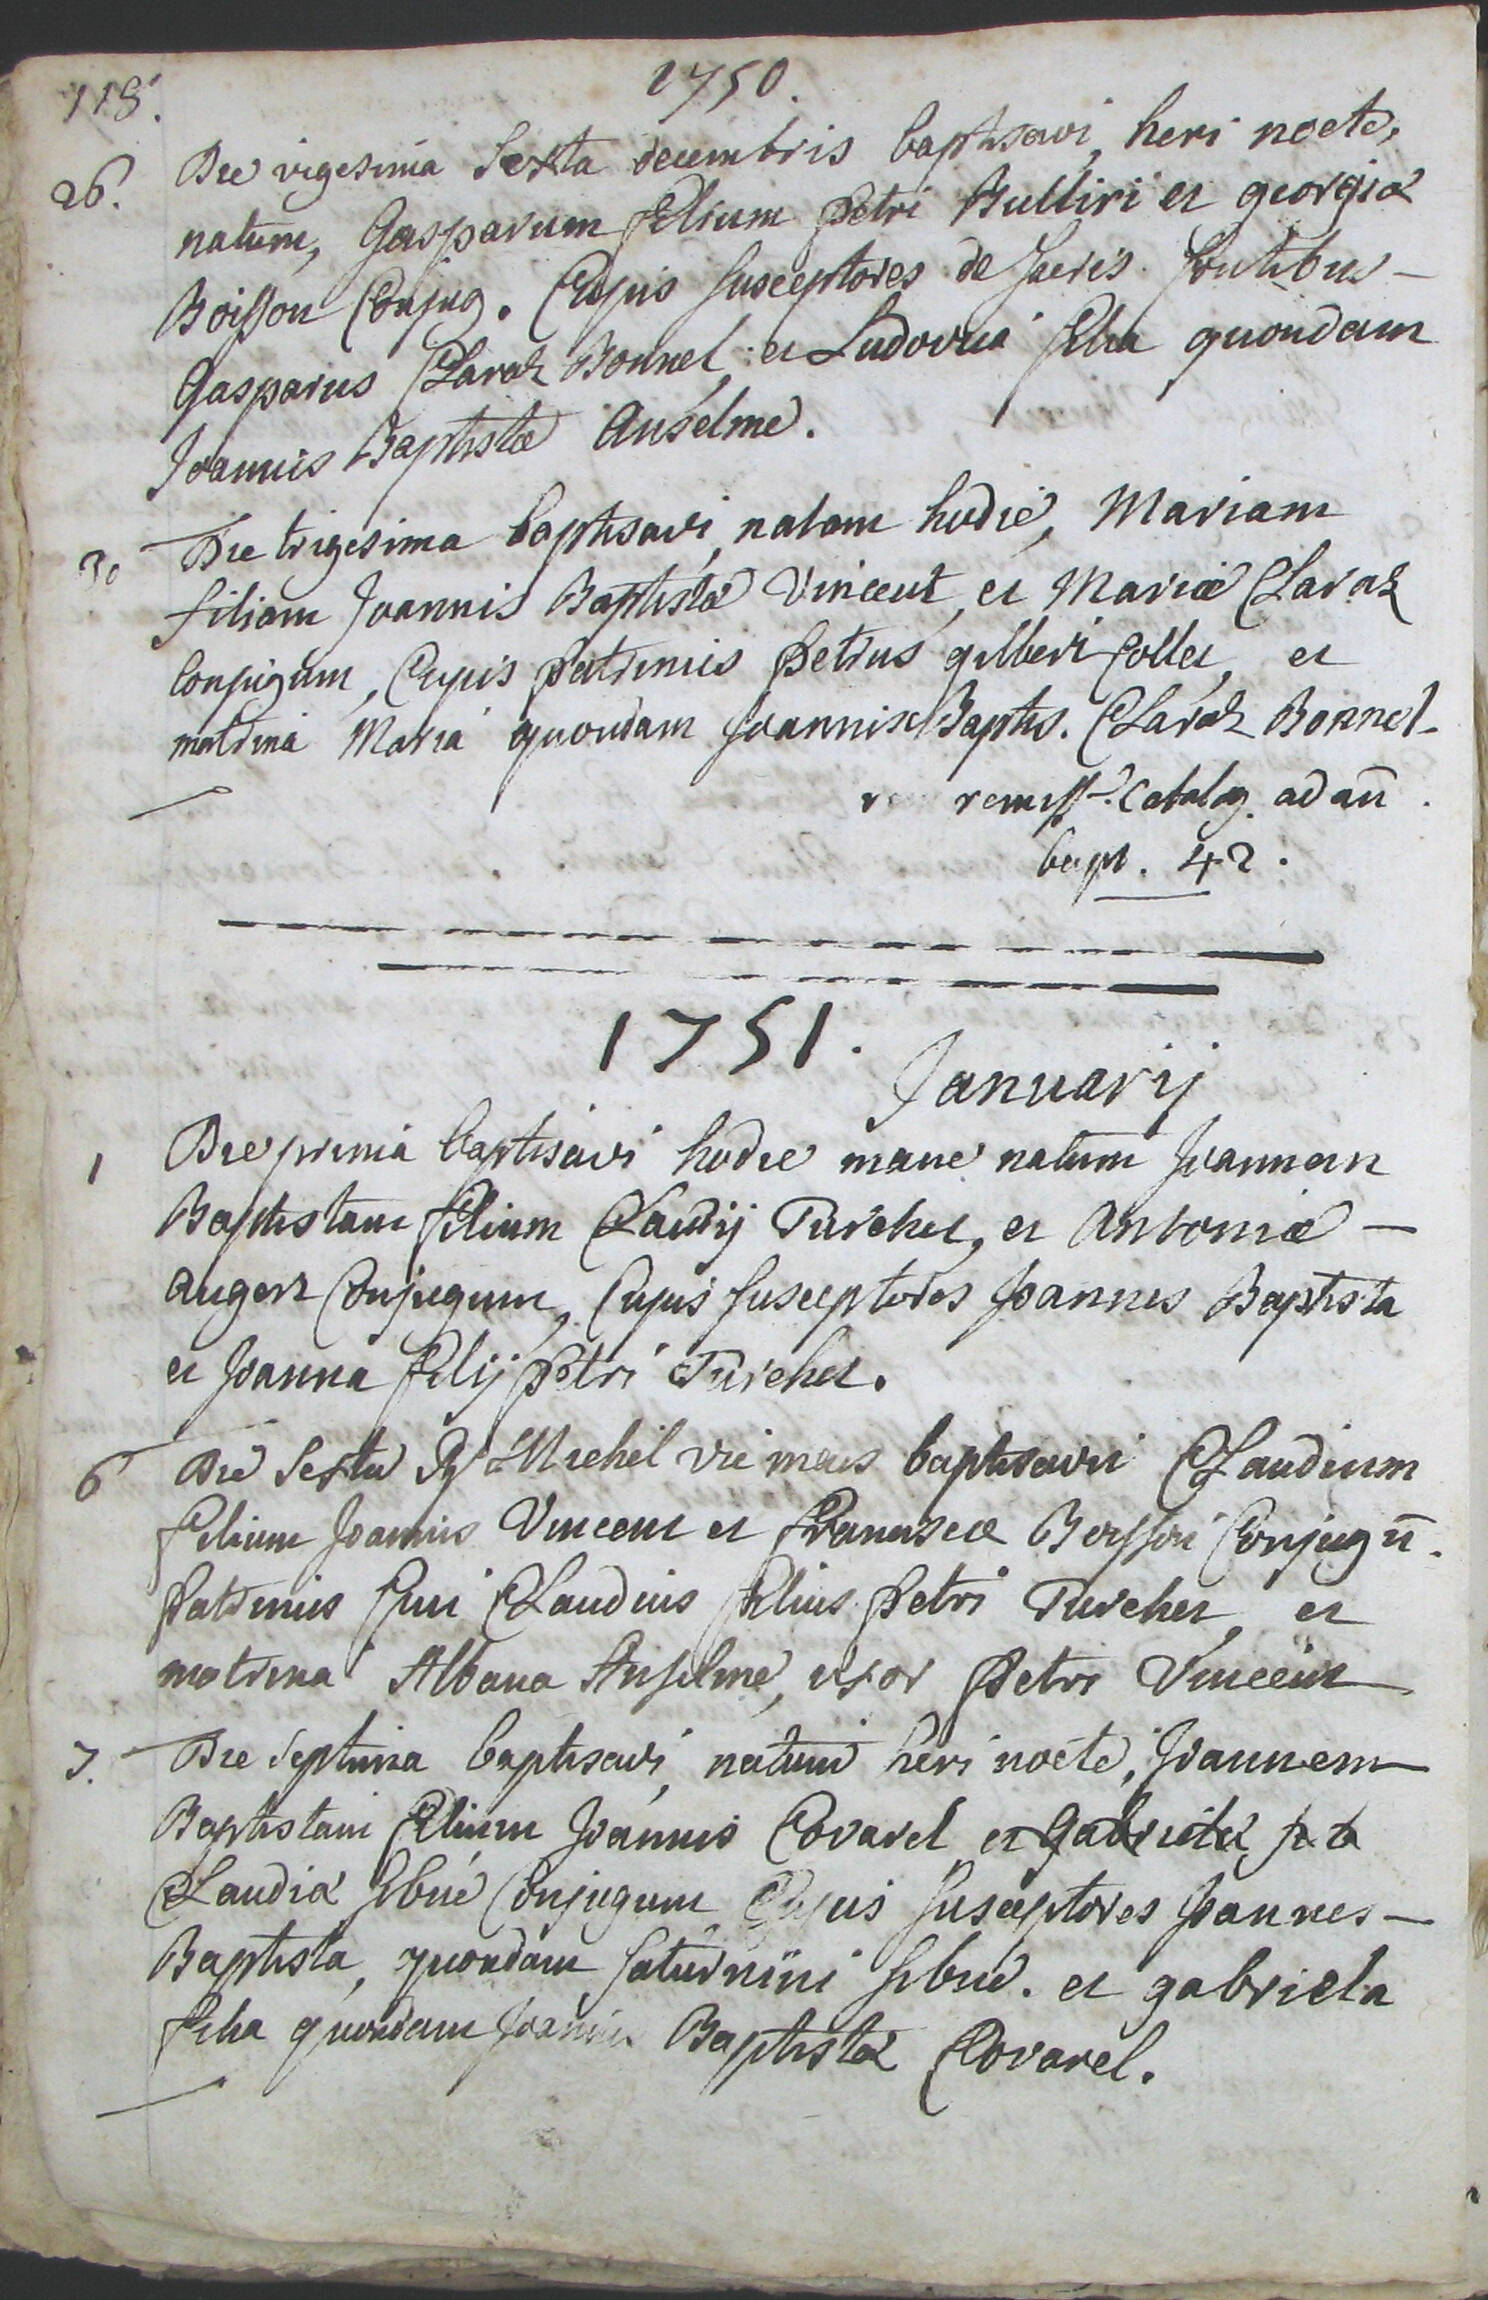 118.
1750.
26. Die vigesima Sexta decembris baptisavi, heri nocte,
natum, Gasparum filium petri Bulliri et georgiæ
Boisson Conjug. Cujus Susceptores de Sacris fontibus –
Gasparus Claraz Bonnel, et Ludovica filia quondam
Joannis Baptistæ Anselme.
30 Die trigesima baptisavi, natam hodie, Mariam
filiam Joannis Baptistæ Vincent, et Mariæ Claraz
Conjugum, Cujus patrinus petrus gilberti Collet, et
matrina Maria quondam Joannis Baptis. Claraz Bonnel.
remiss. Catalog. ad an̄.
bapt. 42.
1751.
Januarij
1 Die prima baptisavi hodie mane natum Joannem
Baptistam filium Claudij Turchet, et Antoniæ –
Auger Conjugum, Cujus Susceptores Joannes Baptista
et Joanna filij petri Turchet.
6 Die Sexta Michel baptisavit Claudium
filium Joannis Vincent et franciscæ Boisson Conjugū.
patrinus fuit Claudius filius petri Turchet, et
matrina Albana Anselme, uxor petri Vincent
7. Die Septima baptisavi, natum heri nocte, Joannem
Baptistam filium Joannis Covarel et Gabrielæ
Claudiæ Sibué Conjugum Cujus Susceptores Joannes –
Baptista, quondam Saturnini Sibué. et gabriela
filia quondam Joannis Baptistæ Covarel.